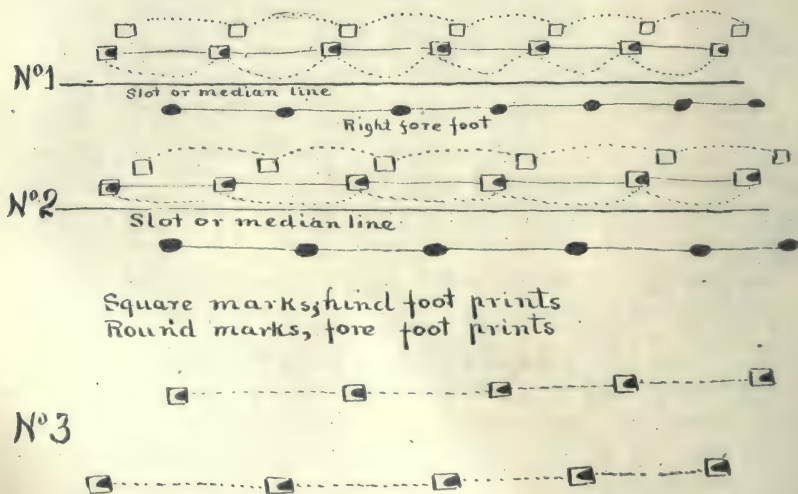 Nº1
Slot or median line
Right fore foot
Nº2
Slot or median line
Square marks, hind foot prints
Round marks, fore foot prints
Nº3